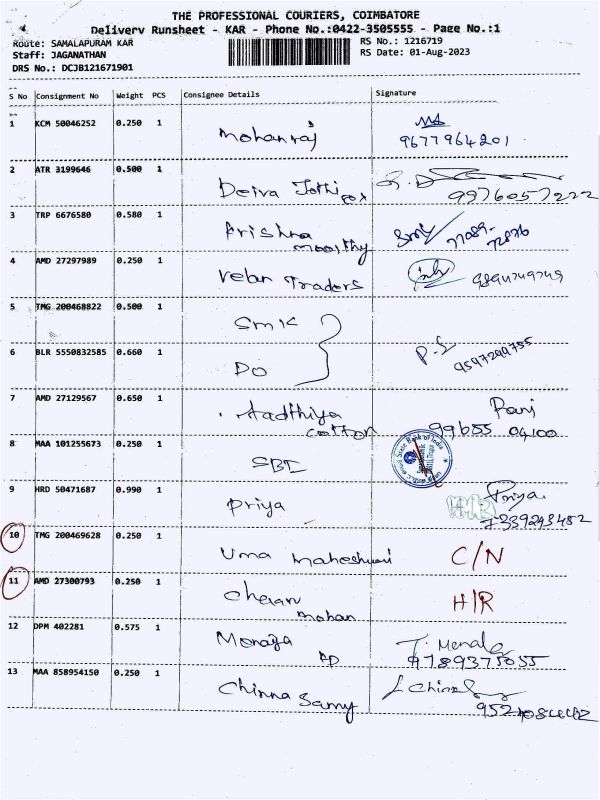 THE PROFESSIONAL COURIERS, COIMBATORE
Delivery Runsheet - KAR - Phone No.:0422-3505555 - Page No.:1
Route: SAMALAPURAM KAR
RS No.: 1216719
Staff: JAGANATHAN
RS Date: 01-Aug-2023
DRS No.: DCJB121671901
S No Consignment No Weight PCS Consignee Details Signature
1 KCM 50046252 0.250 1 Mohanraj
9677964201
2 ATR 3199646 0.500 1 Deiva Jothi
9976057222
3 TRP 6676580 0.580 1 Krishna
moorthy
77089-
72876
4 AMD 27297989 0.250 1 Velan Traders
5 TMG 200468822 0.500 1 SMK
6 BLR 5550832585 0.660 1 DO P.S
9597299755
7 AMD 27129567 0.650 1 Aadthiya
cotton
Rani
99655 04100
8 MAA 101255673 0.250 1 SBI
State Bank of India
9 HRD 50471687 0.990 1 Priya Priya
7339293482
10 TMG 200469628 0.250 1 Uma Maheshwari C/N
11 AMD 27300793 0.250 1 mohan H/R
12 DPM 402281 0.575 1
9789375055
13 MAA 858954150 0.250 1 Chinna Samy